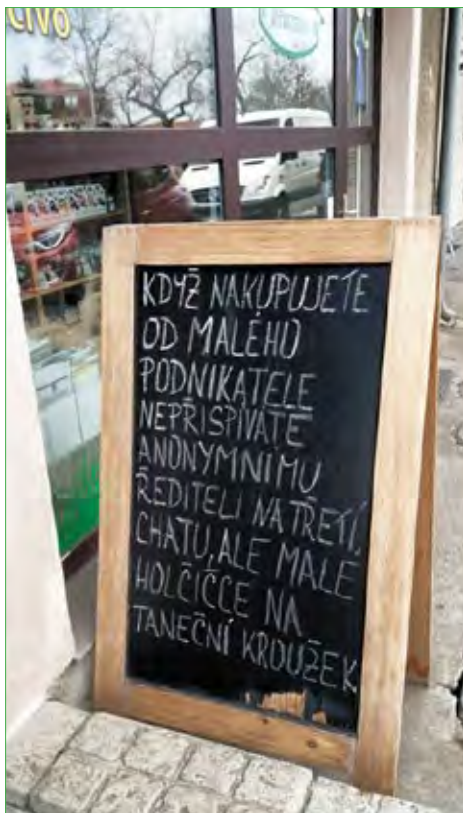 ČIVO
KDYŽ NAKUPUJETE
OD MALÉHO
PODNIKATELE
NEPŘISPÍVÁTE
ANONYMNÍMU
ŘEDITELI NA TŘETÍ
CHATU, ALE MALÉ
HOLČIČCE NA
TANEČNÍ KROUŽEK